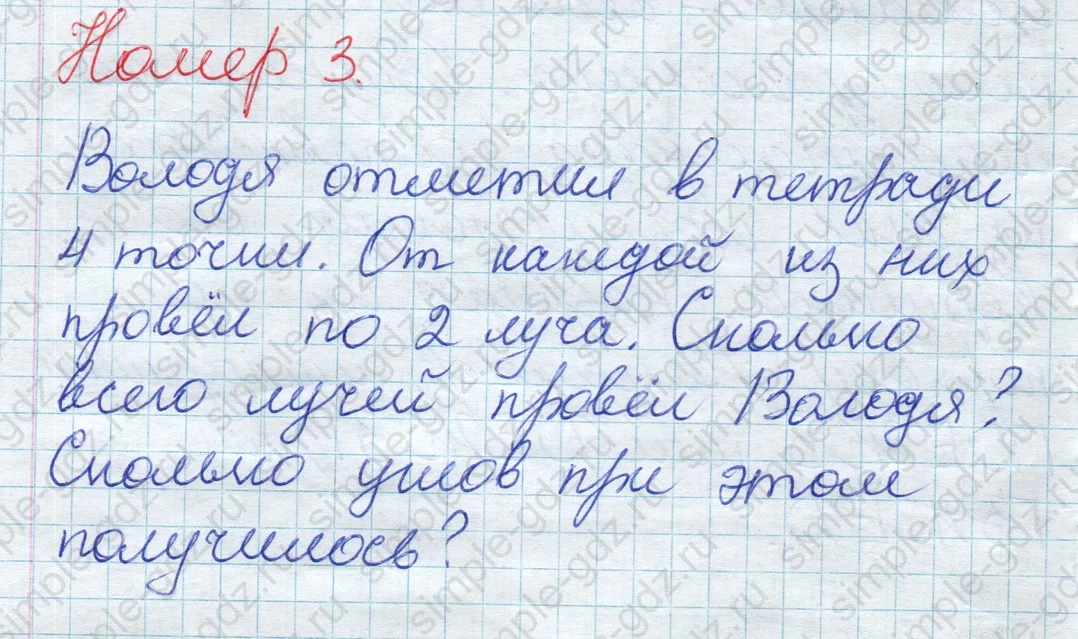 Номер 3.
Володя отметил в тетради
4 точки. От каждой из них
провёл по 2 луча. Сколько
всего лучей провёл Володя?
Сколько углов при этом
получилось?